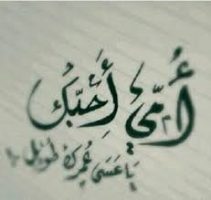 أُمِّي أُحِبُّك
يا عسى عمرك طويل